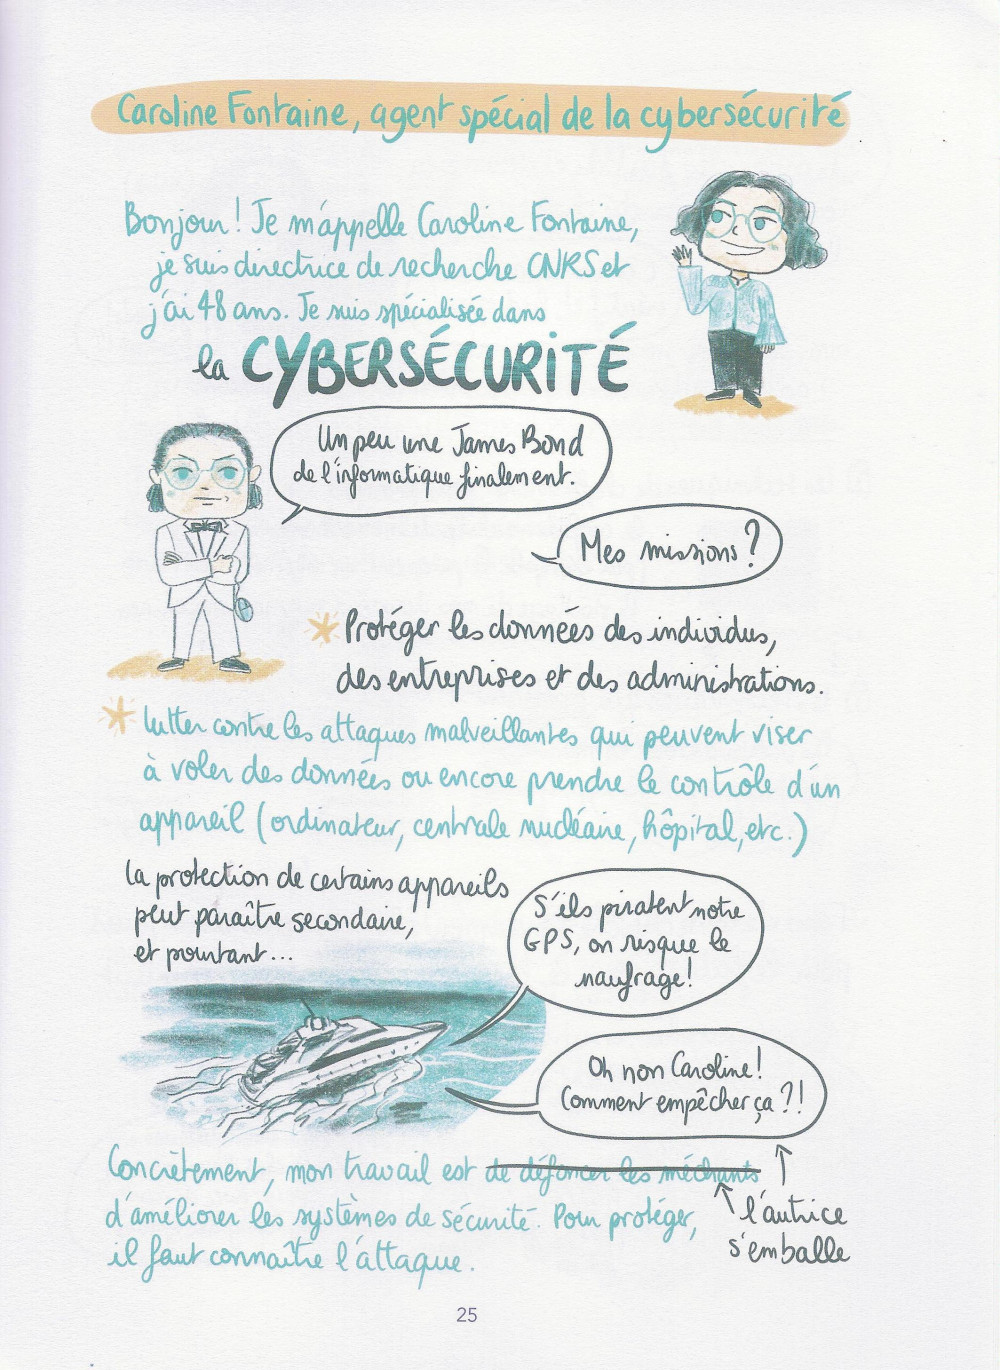 Caroline Fontaine, agent spécial de la cybersécurité
Bonjour! Je m'appelle Caroline Fontaine,
je suis directrice de recherche CNRS et
j'ai 48 ans. Je suis spécialisée dans
la CYBERSÉCURITÉ
Un peu une James Bond
de l'informatique finalement.
Mes missions?
* Protéger les données des individus,
des entreprises et des administrations.
* Lutter contre les attaques malveillantes qui peuvent viser
à voler des données ou encore prendre le contrôle d'un
appareil (ordinateur, centrale nucléaire, hôpital, etc.)
La protection de certains appareils
peut paraître secondaire,
et pourtant...
S'ils piratent notre
GPS, on risque le
naufrage!
Oh non Caroline!
Comment empêcher ça?!
Concrètement, mon travail est de défoncer les méchants
d'améliorer les systèmes de sécurité. Pour protéger,
il faut connaître l'attaque.
l'autrice
s'emballe
25